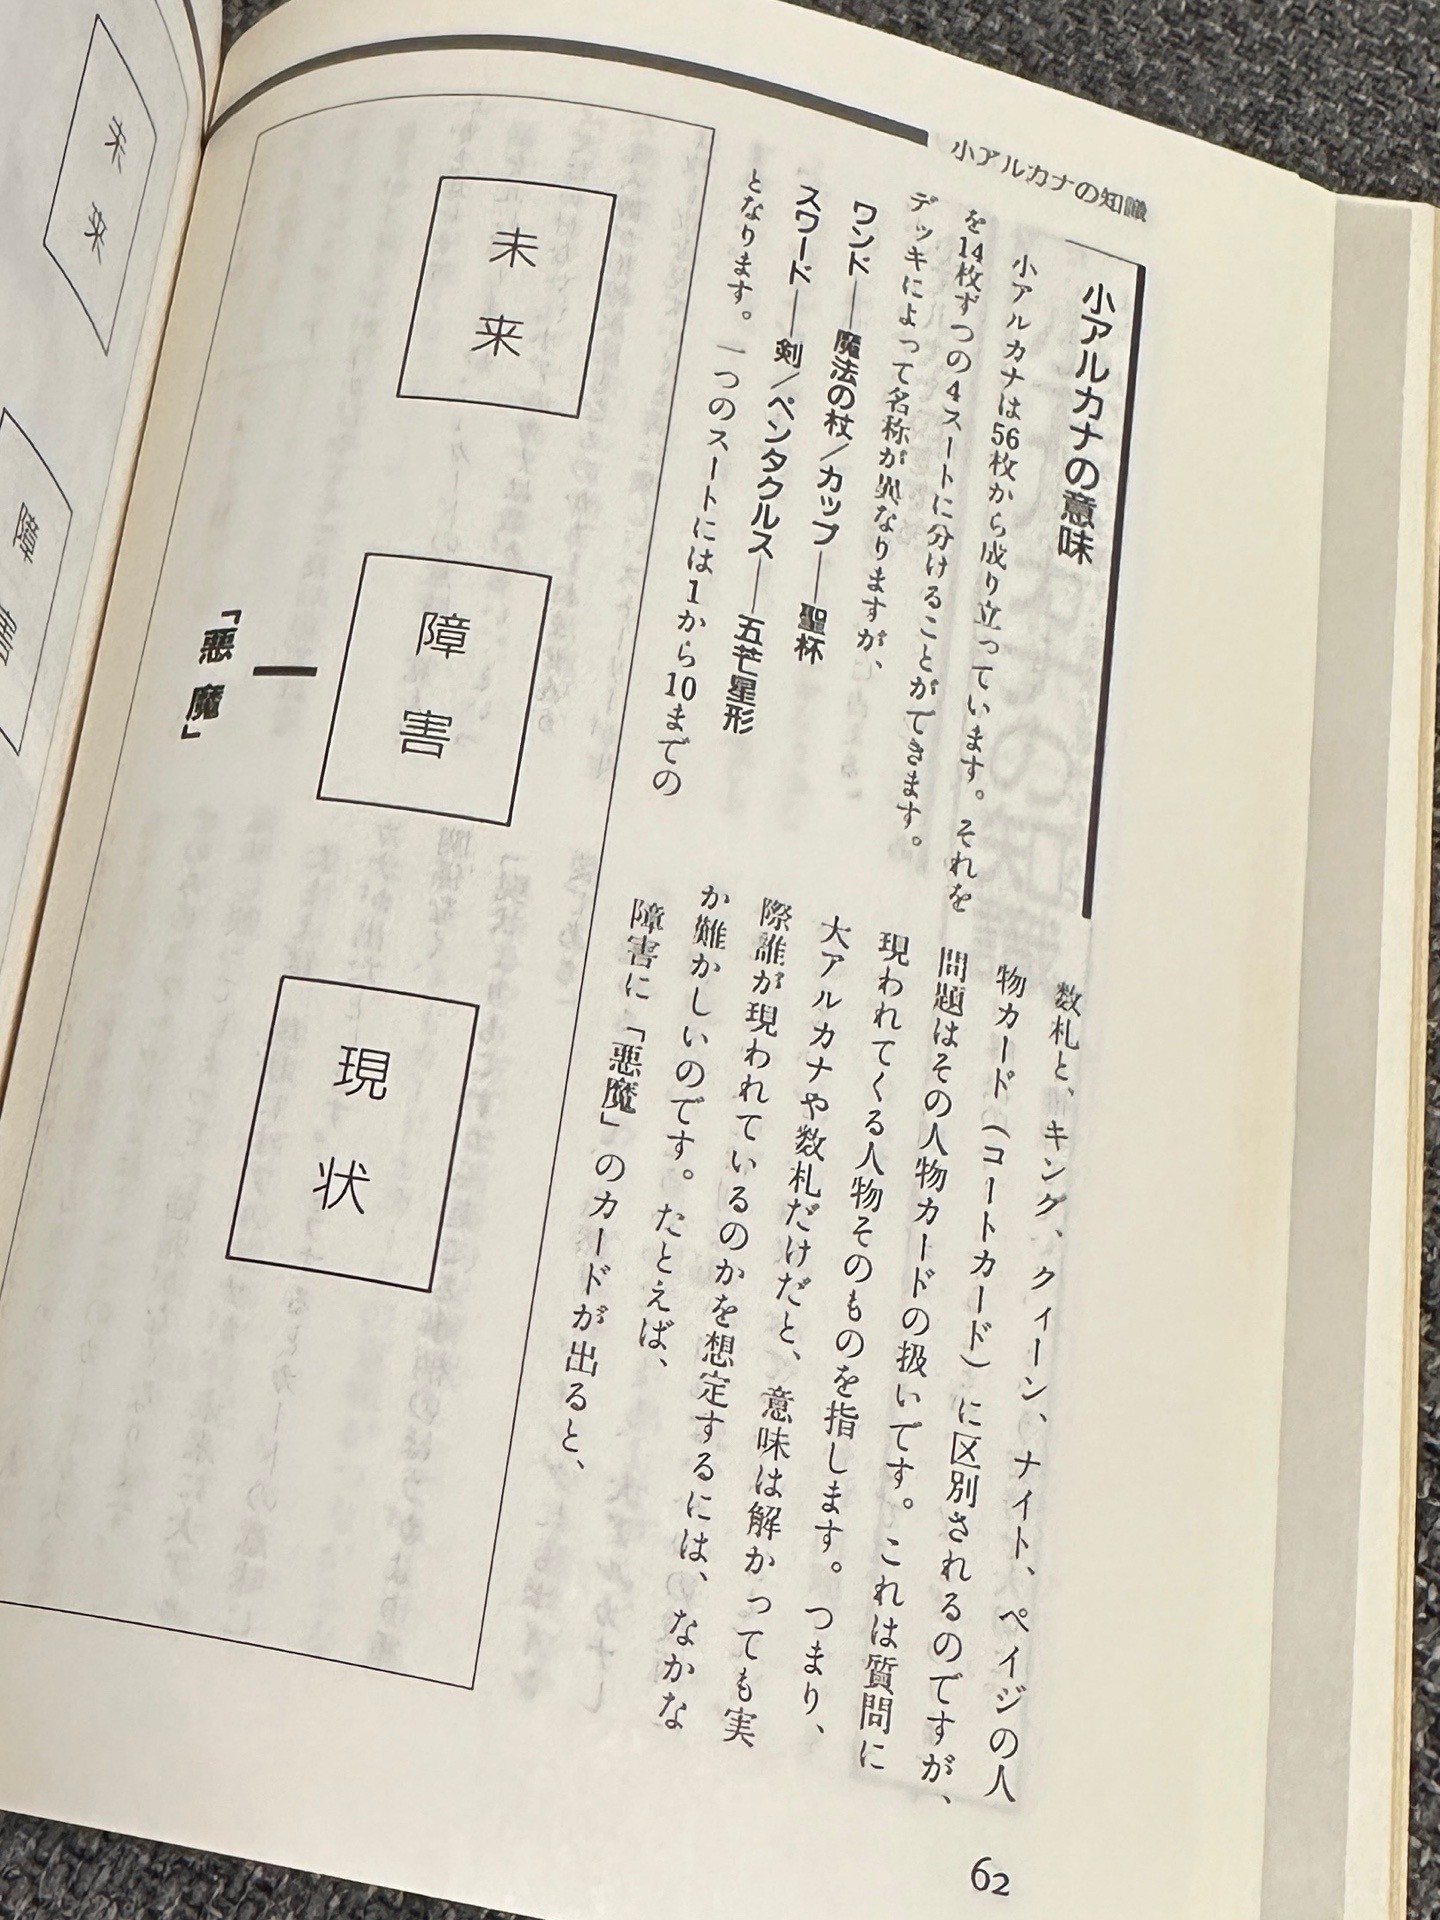 小アルカナの知識
小アルカナの意味
小アルカナは56枚から成り立っています。それを
を14枚ずつの4スートに分けることができます。
デッキによって名称が異なりますが、
ワンド――魔法の杖／カップ――聖杯
スワード――剣／ペンタクルス――五芒星形
となります。一つのスートには1から10までの
数札と、キング、クィーン、ナイト、ペイジの人
物カード（コートカード）に区別されるのですが、
問題はその人物カードの扱いです。これは質問に
現われてくる人物そのものを指します。つまり、
大アルカナや数札だけだと、意味は解かっても実
際誰が現われているのかを想定するには、なかな
か難かしいのです。たとえば、
障害に「悪魔」のカードが出ると、
未来
障害
「悪魔」
現状
62
未来
障害